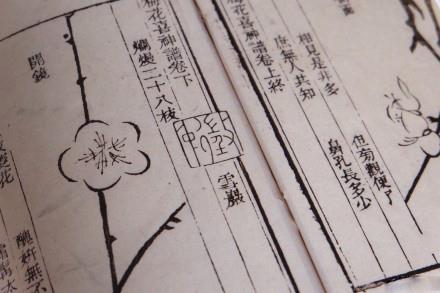 相見是非多
庶無人共知
便了
鼻孔長多少
梅花喜神譜卷上終
梅花喜神譜卷下
爛熳二十八枝
雪巖
開鏡
醜妍無不